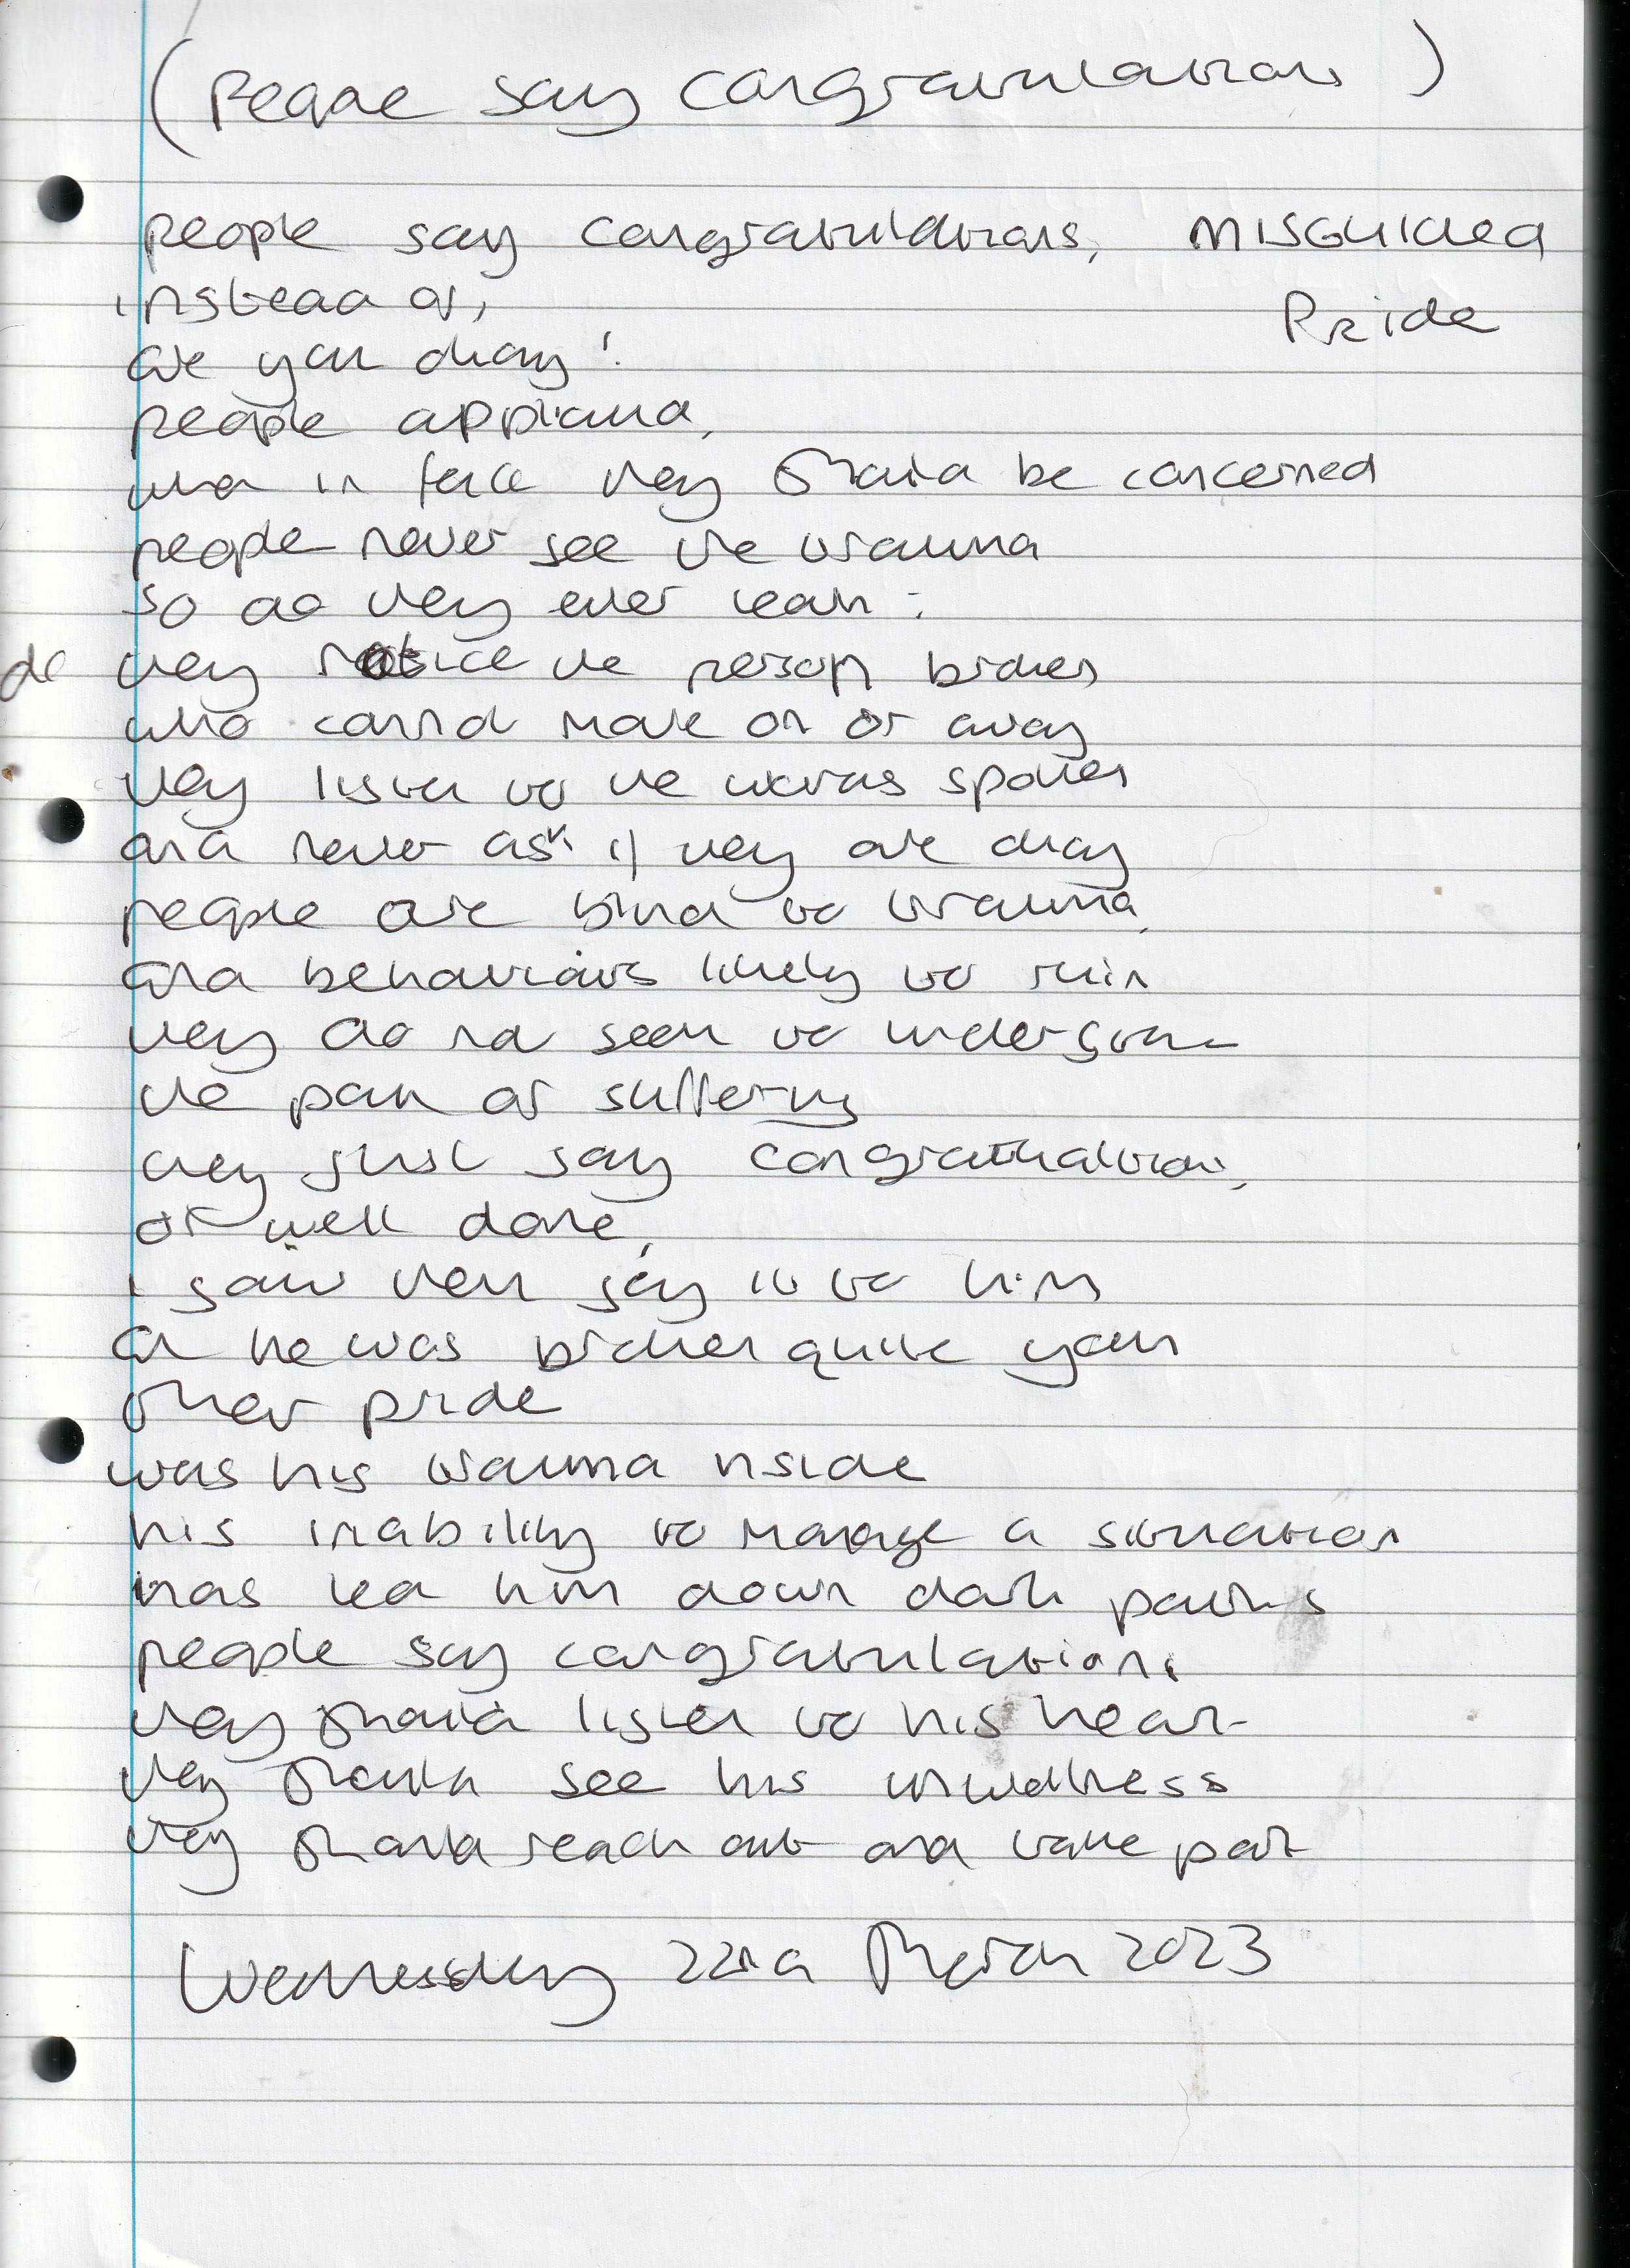 (People say congratulations)
people say congratulations, MISGUIDED
instead of, Pride
are you okay?
people applaud,
when in fact they should be concerned
people never see the trauma
so do they ever learn?
do they notice the person broken
who cannot move on or away
they listen to the words spoken
and never ask if they are okay
people are blind to trauma,
and behaviours likely to ruin
they do not seem to understand
the pain or suffering
they just say congratulations,
or well done,
i saw them say it to him
as he was broken quite young
their pride
was his trauma inside
his inability to manage a situation
has led him down dark paths
people say congratulations
they should listen to his heart
they should see his unwellness
they should reach out and take part
Wednesday 22nd March 2023